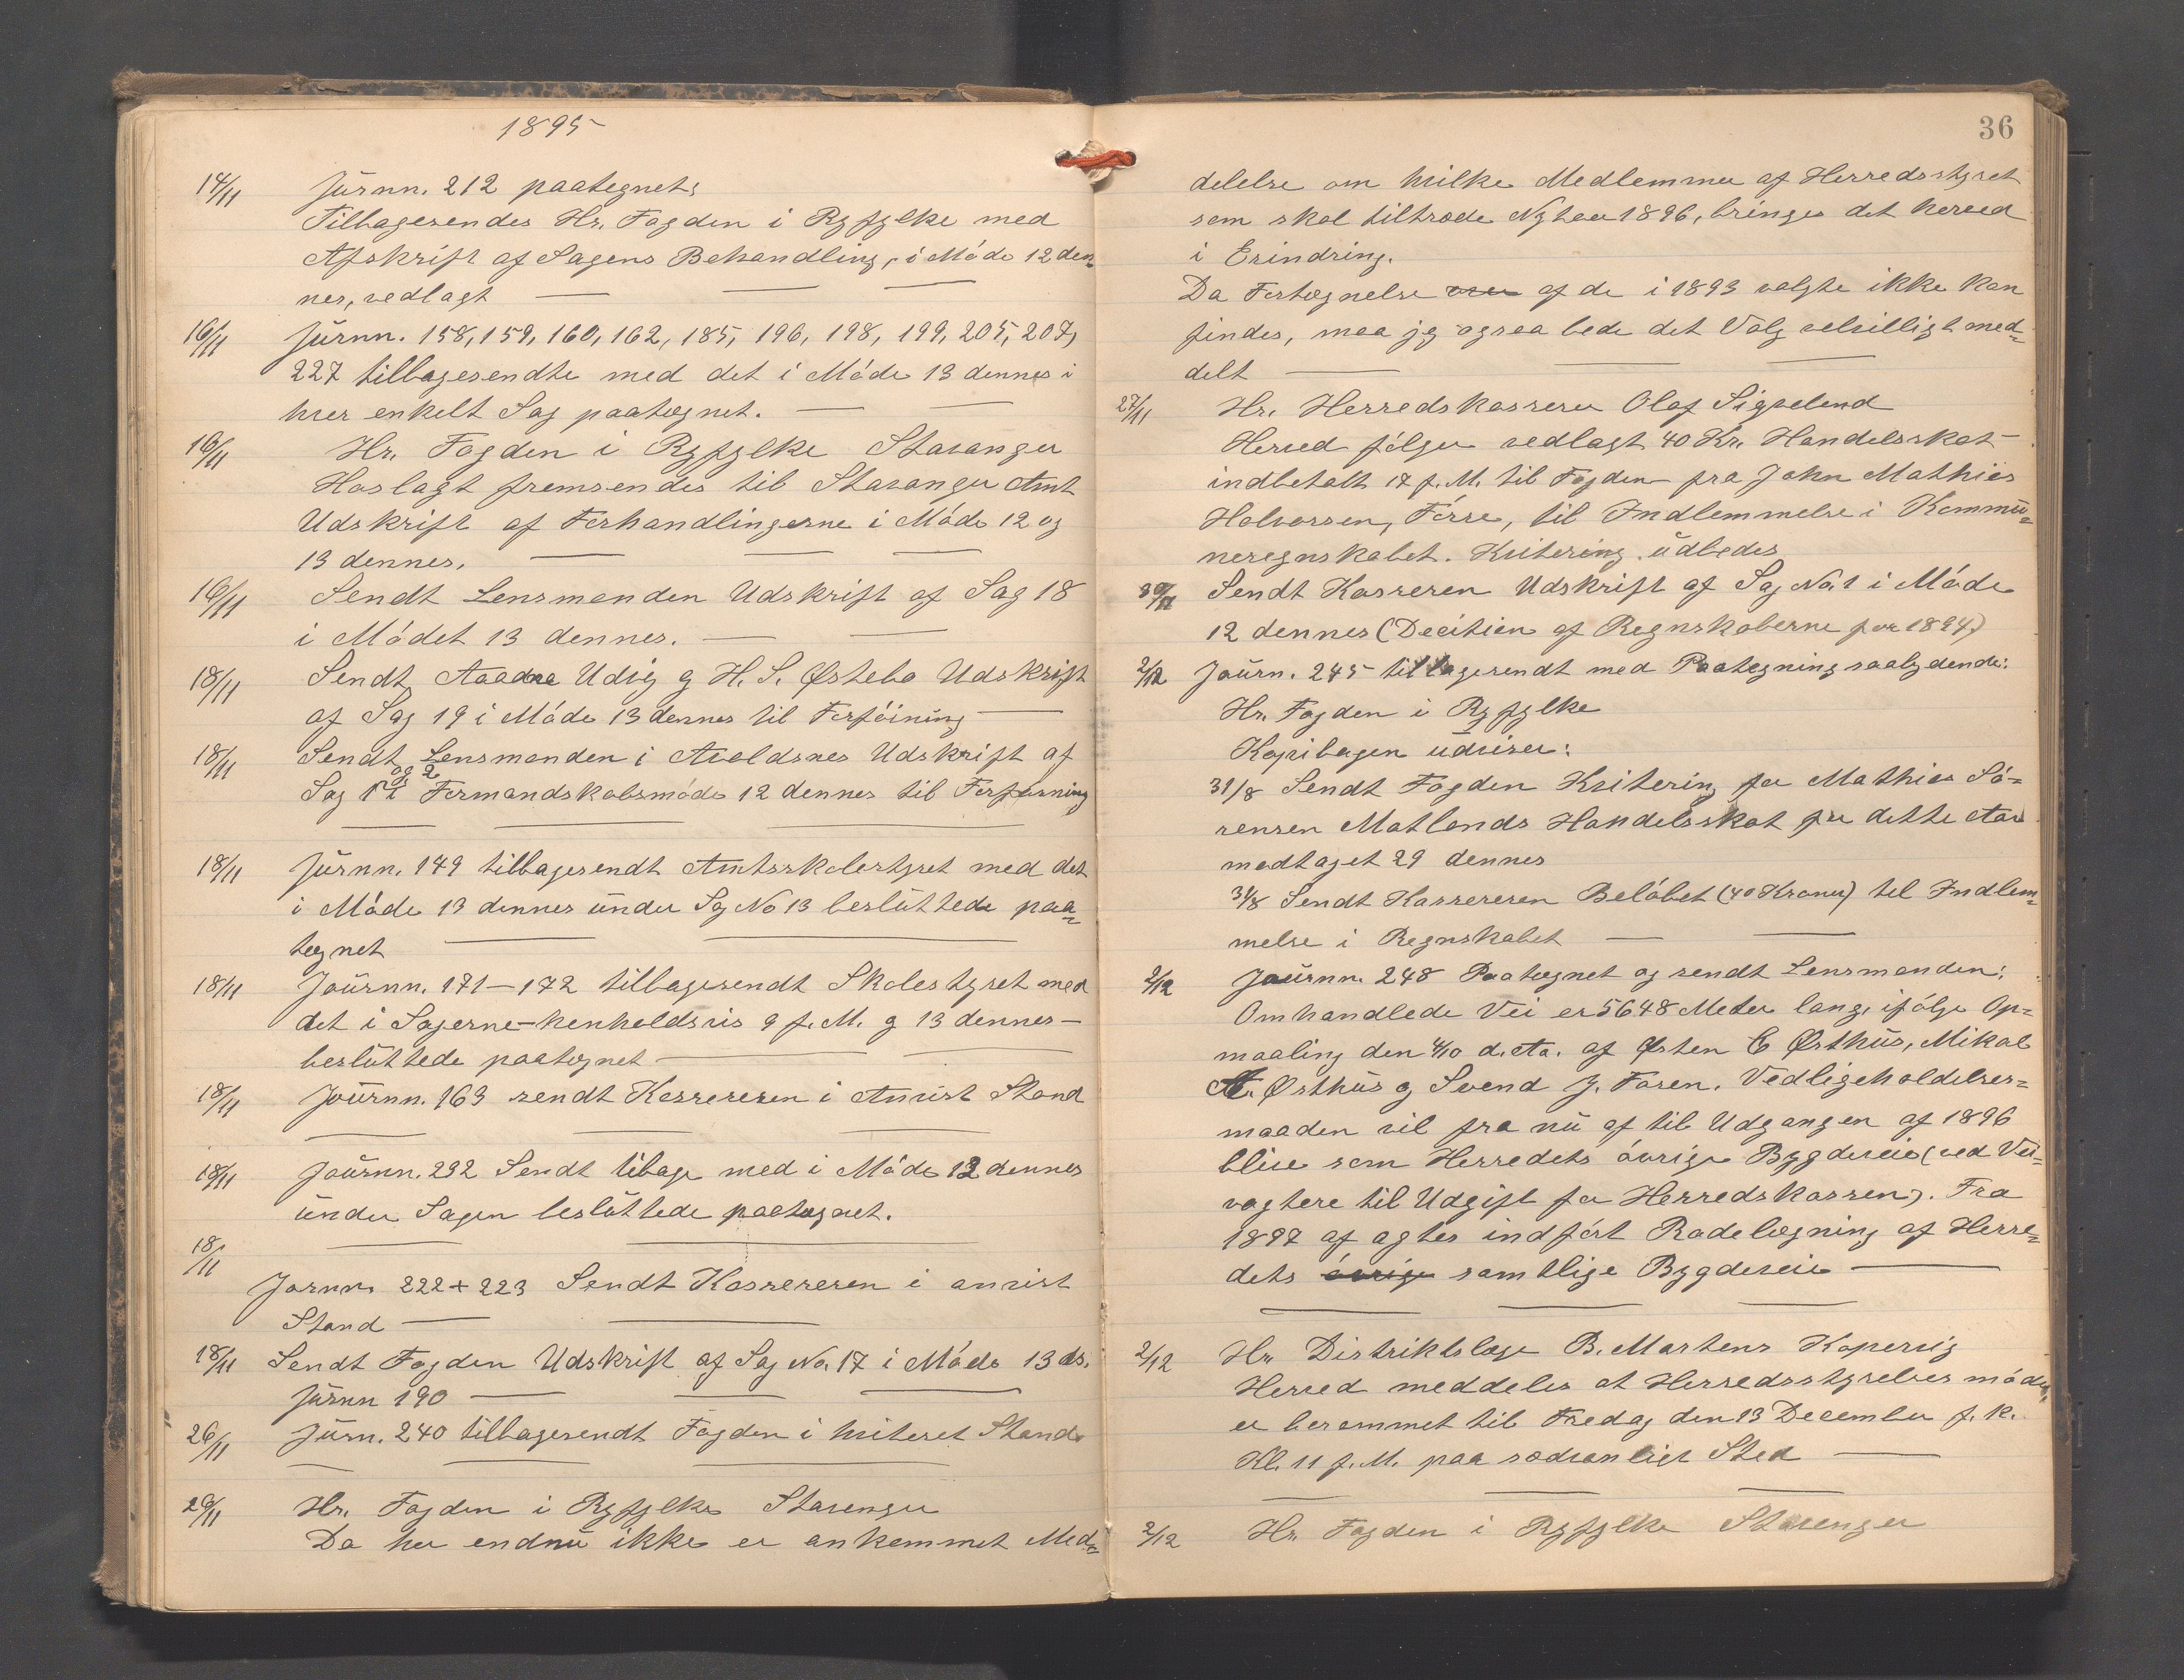 1895
14/11 Jurnn. 212 paategnet:
Tilbagesendes Hr. Fogden i Ryfylke med
Afskrift af Sagens Behandling, i Møde 12 den-
nes, vedlagt
16/11 Jurnn. 158, 159, 160, 162, 185, 196, 198, 199, 205, 207,
227 tilbagesendte med det i Møde 13 dennes i
hver enkelt Sag paategnet.
16/11 Hr. Fogden i Ryfylke Stavanger
Hoslagt fremsendes til Stavanger Amt
Udskrift af Forhandlingerne i Møde 12 og
13 dennes.
16/11 Sendt Lensmanden Udskrift af Sag 18
i Mødet 13 dennes.
18/11 Sendt Aadne Udvig og H. S. Østebø Udskrift
af Sag 19 i Møde 13 dennes til Forføining
18/11 Sendt Lensmanden i Avaldsnes Udskrift af
Sag 1 og 2 i Formandskabsmøde 12 dennes til Forføining
18/11 Jurnn. 149 tilbagesendt Amtsskolestyret med det
i Møde 13 dennes under Sag No 13 besluttede paa-
tegnet
18/11 Journn. 171-172 tilbagesendt Skolestyret med
det i Sagerne-henholdsvis 9 f. M. og 13 dennes-
besluttede paategnet
18/11 Journn. 163 sendt Kassereren i Anvist Stand
18/11 Journn. 232 Sendt tibage med i Møde 12 dennes
under Sagen besluttede paategnet.
18/11
Jornn. 222 + 223 Sendt Kassereren i anvist
Stand
18/11 Sendt Fogden Udskrift af Sag No. 17 i Møde 13 ds.
Jurnn 190
26/11 Jurn. 240 tilbagesendt Fogden i kviteret Stand
29/11 Hr. Fogden i Ryfylke Stavanger
Da her endnu ikke er ankommet Med-
36
delelse om hvilke Medlemmer af Herredsstyret
som skal tiltræde Nytaar 1896, bringes det herved
i Erindring.
Da Fortegnelse over af de i 1893 valgte ikke kan
findes, maa jeg ogsaa bede det Valg velvilligt med-
delt
27/11 Hr. Herredskasserer Olaf Sigvaland
Herved følger vedlagt 40 Kr. Handelsskat
indbetalt 17 f. M. til Fogden fra John Mathias
Halvorsen, Førre, til Indlemmelse i Kommu-
neregnskabet. Kvitering udbedes
30/11 Sendt Kasseren Udskrift af Sag No. 1 i Møde
12 dennes (Decition af Regnskaberne for 1894)
2/12 Journ. 245 tilbagesendt med Paategning saalydende:
Hr. Fogden i Ryfylke
Kopibogen udviser:
31/8 Sendt Fogden Kvitering for Mathias Sø-
rensen Matlands Handelsskat for dette Aar
modtaget 29 dennes
31/8 Sendt Kassereren Beløbet (40 Kroner) til Indlem-
melse i Regnskabet
2/12 Journn. 248 Paategnet og sendt Lensmanden:
Omhandlede Vei er 5648 Meter lang, ifølge Op-
maaling den 4/10 d. Aa. af Østen E Østhus, Mikal
A. Østhus og Svend J. Fosen. Vedligeholdelses-
maaden vil fra nu af til Udgangen af 1896
blive som Herredets øvrige Bygdeveie (ved Vei-
vogtere til Udgift for Herredskassen). Fra
1897 af agtes indført Rodelægning af Herre-
dets øvrige samtlige Bygdeveie
2/12 Hr. Distriktslæge B. Martens Kopervig
Herved meddeles at Herredsstyrelses møde
er berammet til Fredag den 13 December f. k.
Kl. 11 f. M. paa sædvanligt Sted
2/12 Hr. Fogden i Ryfylke Stavanger